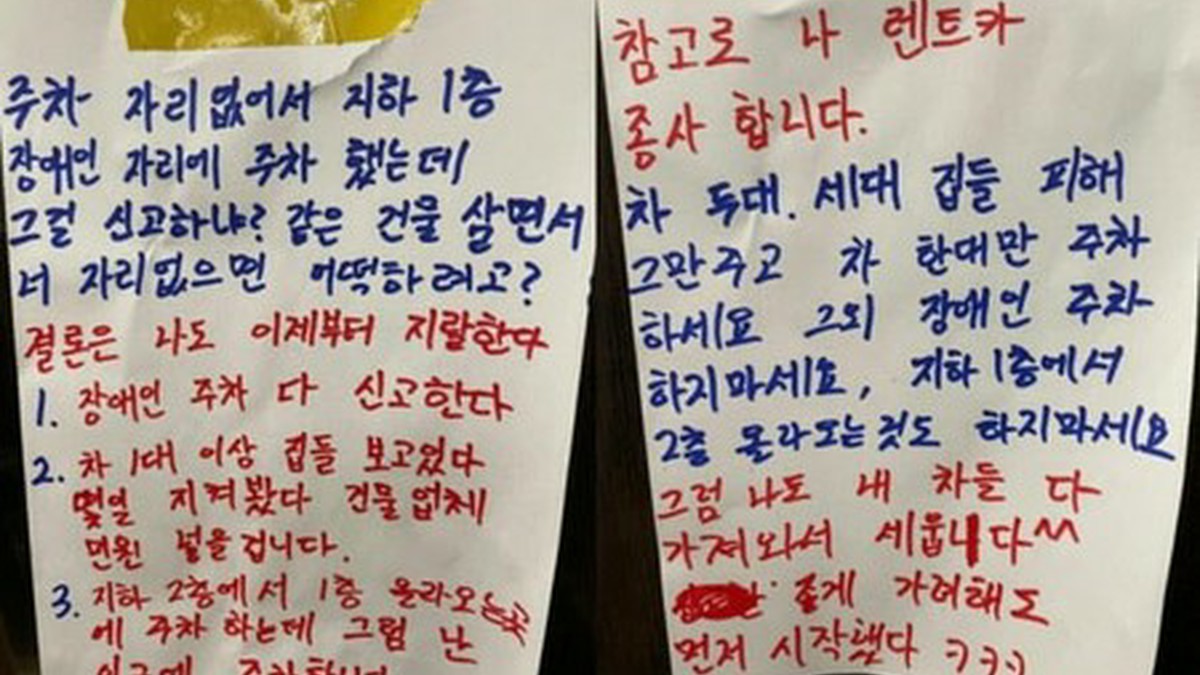 주차 자리없어서 지하 1층
장애인 자리에 주차 했는데
그걸 신고하냐? 같은 건물 삶면서
너 자리없으면 어떡하려고?
결론은 나도 이제부터 지랄한다
1. 장애인 주차 다 신고한다
2. 차 1대 이상 집들 보고있다
몇일 지켜봤다 건물업체
민원 넣을겁니다.
3. 지하 2층에서 1층 올라오는곳
에 주차 하는데 그럼 난
참고로 나 렌트카
종사 합니다.
차 두대. 세대 집들 피해
그만주고 차 한대만 주차
하세요 그외 장애인 주차
하지마세요, 지하1층에서
2층 올라오는것도 하지마세요
그럼 나도 내 차들 다
가져와서 세웁니다^^
좋게 가려해도
먼저 시작했다 ㅋㅋㅋ